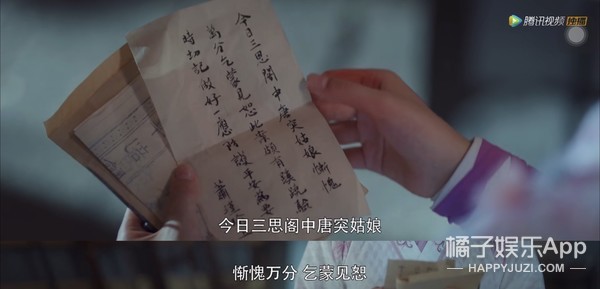 腾讯视频 独播
今日三思阁中唐突姑娘惭愧
萬分乞蒙見恕此案頗有
切記做好一應
今日三思阁中唐突姑娘
惭愧万分 乞蒙见恕
橘子娱乐App
HAPPYJUZI.COM